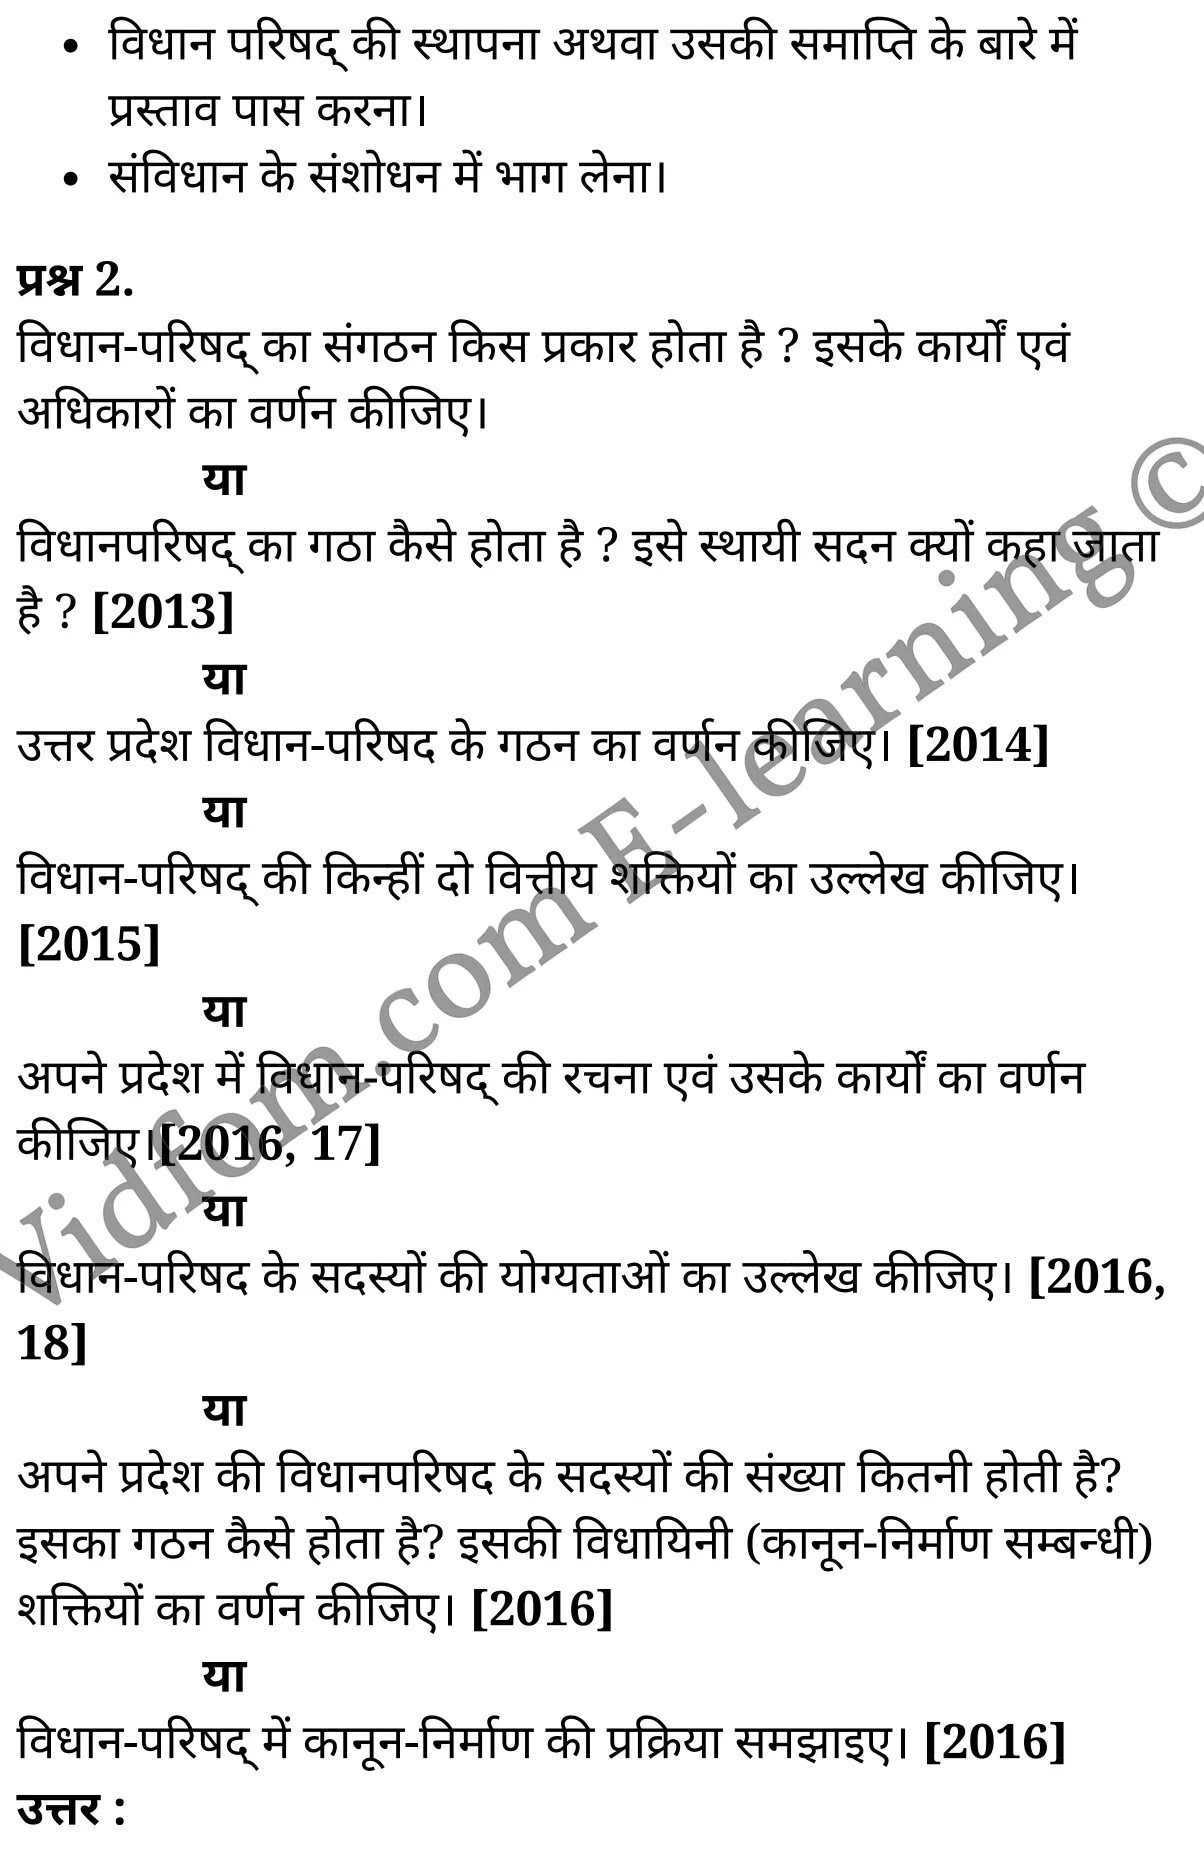 • विधान परिषद् की स्थापना अथवा उसकी समाप्ति के बारे में
प्रस्ताव पास करना।
• संविधान के संशोधन में भाग लेना।
प्रश्न 2.
विधान-परिषद् का संगठन किस प्रकार होता है ? इसके कार्यों एवं
अधिकारों का वर्णन कीजिए।
या
विधानपरिषद् का गठा कैसे होता है ? इसे स्थायी सदन क्यों कहा जाता
है ? [2013]
या
उत्तर प्रदेश विधान-परिषद के गठन का वर्णन कीजिए। [2014]
या
विधान-परिषद् की किन्हीं दो वित्तीय शक्तियों का उल्लेख कीजिए।
[2015]
या
अपने प्रदेश में विधान-परिषद् की रचना एवं उसके कार्यों का वर्णन
कीजिए।[2016, 17]
या
विधान-परिषद के सदस्यों की योग्यताओं का उल्लेख कीजिए। [2016,
18]
या
अपने प्रदेश की विधानपरिषद के सदस्यों की संख्या कितनी होती है?
इसका गठन कैसे होता है? इसकी विधायिनी (कानून-निर्माण सम्बन्धी)
शक्तियों का वर्णन कीजिए। [2016]
या
विधान-परिषद् में कानून-निर्माण की प्रक्रिया समझाइए। [2016]
उत्तर :
Vidfom.com E-learning ©